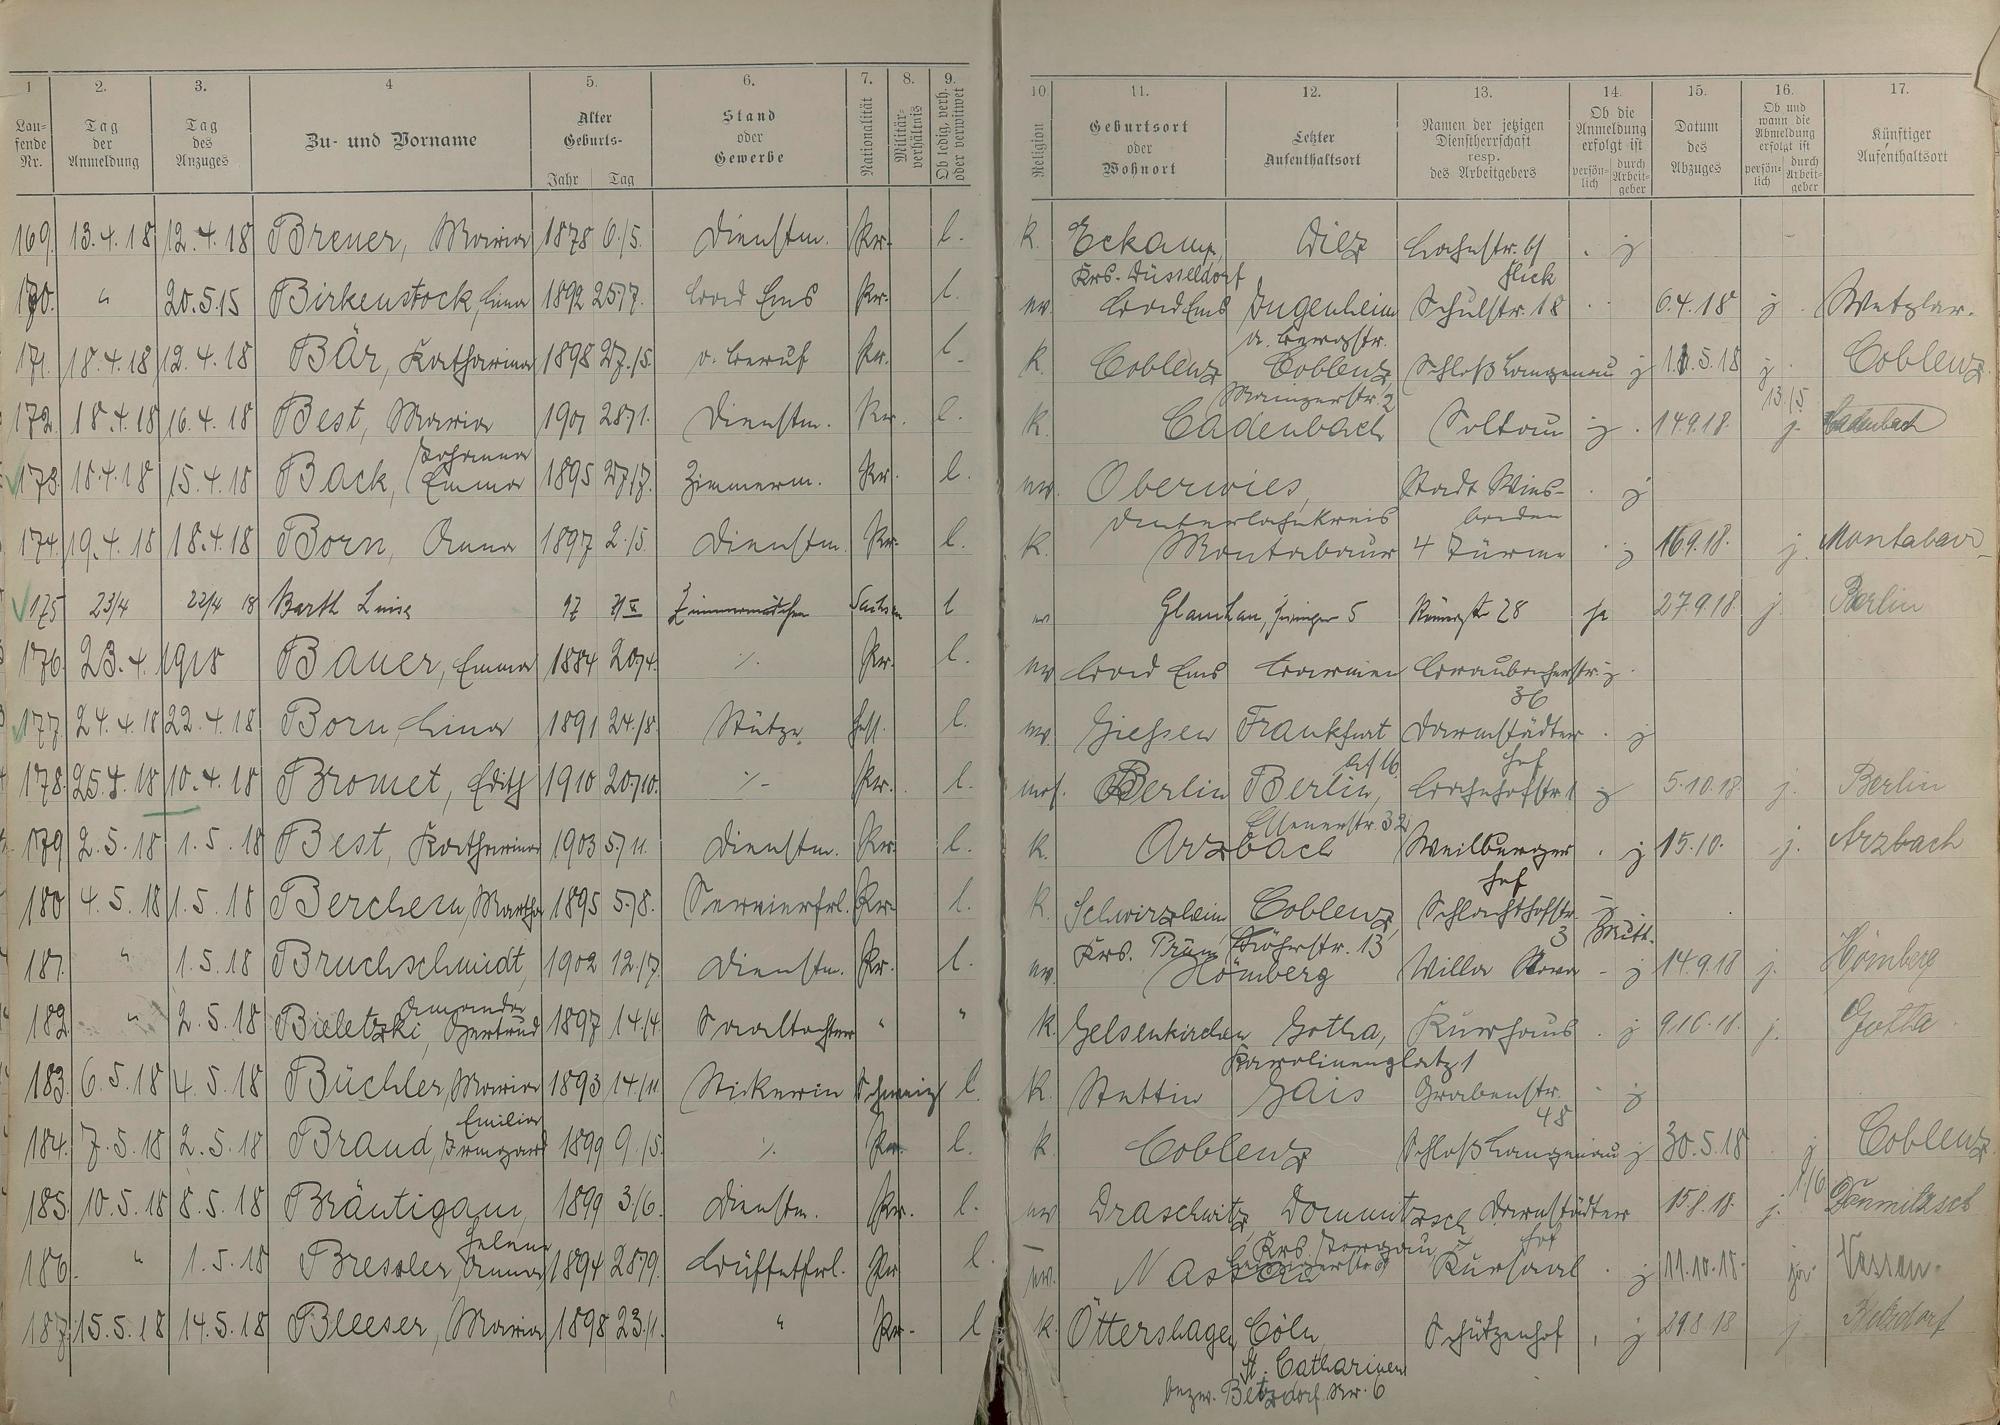 1 2. 3. 4 5. 6. 7. 8. 9. 10. 11. 12. 13. 14. 15. 16. 17.
Lau-fende Nr. Tag der Anmeldung Tag des Anzuges Zu- und Vorname Alter Geburts- Jahr Tag Stand oder Gewerbe Nationalität Militär-verhältnis Ob ledig, verh. oder verwitwet Religion Geburtsort oder Wohnort Letzter Aufenthaltsort Namen der jetzigen Dienstherrschaft resp. des Arbeitgebers Ob die Anmeldung erfolgt ist persön-lich durch Arbeit-geber Datum des Abzuges Ob und wann die Abmeldung erfolgt ist persön-lich durch Arbeit-geber Künftiger Aufenthaltsort
169. 13.4.18 12.4.18 Breuer, Maria 1878 6./5. Dienstm. Pr. l. k. Eckamp, Diez j
Krs. Düsseldorf Flick
170. " 20.5.15 Birkenstock, Lina 1892 25./7. Bad Ems Pr. l. ev. Bad Ems Jugenheim Schulstr. 18 6.4.18 j Wetzlar.
a. Bergstr.
171. 18.4.18 12.4.18 Bär, Katharina 1898 27./5. o. Beruf Pr. l. k. Coblenz Coblenz, Schloß Langenau j 11.5.18 j Coblenz
Mainzerstr 2 13./5.
172. 18.4.18 16.4.18 Best, Maria 1901 28./1. Dienstm. Pr. l. k. Cadenbach Soltau j 14.9.18. j. Cadenbach
Johanna
173. 18.4.18 15.4.18 Back, Emma 1895 27./7. Zimmerm. Pr. l. ev. Oberwies, Stadt Wies- j
Unterlahnkreis baden
174. 19.4.18 18.4.18 Born, Anna 1897 2./5. Dienstm. Pr. l. k. Montabaur 4 Türme j 16.9.18. j. Montabaur
175 23/4 22/4 18 Barth Luise 97 Zimmermädchen Sachsen l ev Glauchau, 5 Römerstr 28 ja 27.9.18. j. Berlin
176. 23.4.1918 Bauer, Emma 1884 20./4. ./. Pr. l. ev Bad Ems Barmen Braubacherstr. j
36
177. 24.4.18 22.4.18 Born, Lina 1891 24./8. Stütze Hess. l. ev. Giessen Frankfurt Darmstädter j
hof
178. 25.4.18 10.4.18 Bromet, Edith 1910 20./10. ./. Pr. l. mos. Berlin Berlin, Bahnhofstr. 1 j 5.10.18 j. Berlin
179. 2.5.18 1.5.18 Best, Katharina 1903 5./11. Dienstm. Pr. l. k. Arzbach Weilburger j 15.10. j. Arzbach
hof
180 4.5.18 1.5.18 Berchem, Martha 1895 5./8. Servierfrl. Pr. l. k. Schwirzheim Coblenz, Schlachthofstr.
Krs. Prüm 13 3
181. " 1.5.18 Bruchschmidt, 1902 12./7. Dienstm. Pr. l. ev. Hömberg Villa j 14.9.18 j. Hömberg
Amanda
182. " 2.5.18 Bieletzki, Gertrud 1897 14./4. Saaltochter " " k. Gelsenkirchen Gotha, Kurhaus j 9.10.18. j. Gotha
Karolinenplatz 1
183. 6.5.18 4.5.18 Büchler, Maria 1893 14./11. Stickerin Schweiz l. k. Stettin Gais Grabenstr. j
Emilia 48
184. 7.5.18 2.5.18 Braud, Irmgard 1899 9./5. ./. Pr. l. k Coblenz Schloß Langenau j 30.5.18 j Coblenz
1/6
185. 10.5.18 8.5.18 Bräutigam, 1899 3./6. Dienstm. Pr. l. ev Draschwitz Dommitzsch Darmstädter 15.8.18. j. Dommitzsch
Helene Krs. Torgau hof
186. " 1.5.18 Bressler, Anna 1894 28./9. Büffetfrl. Pr l. ev. Nassau Kursaal j 11.10.18. ja. Nassau.
187. 15.5.18 14.5.18 Bleeser, Maria 1898 23./1. " Pr. l k. Öttershagen Cöln Schützenhof j 29.8.18 j Betzdorf
St. Catharinen
bezw. Betzdorf Nr. 6